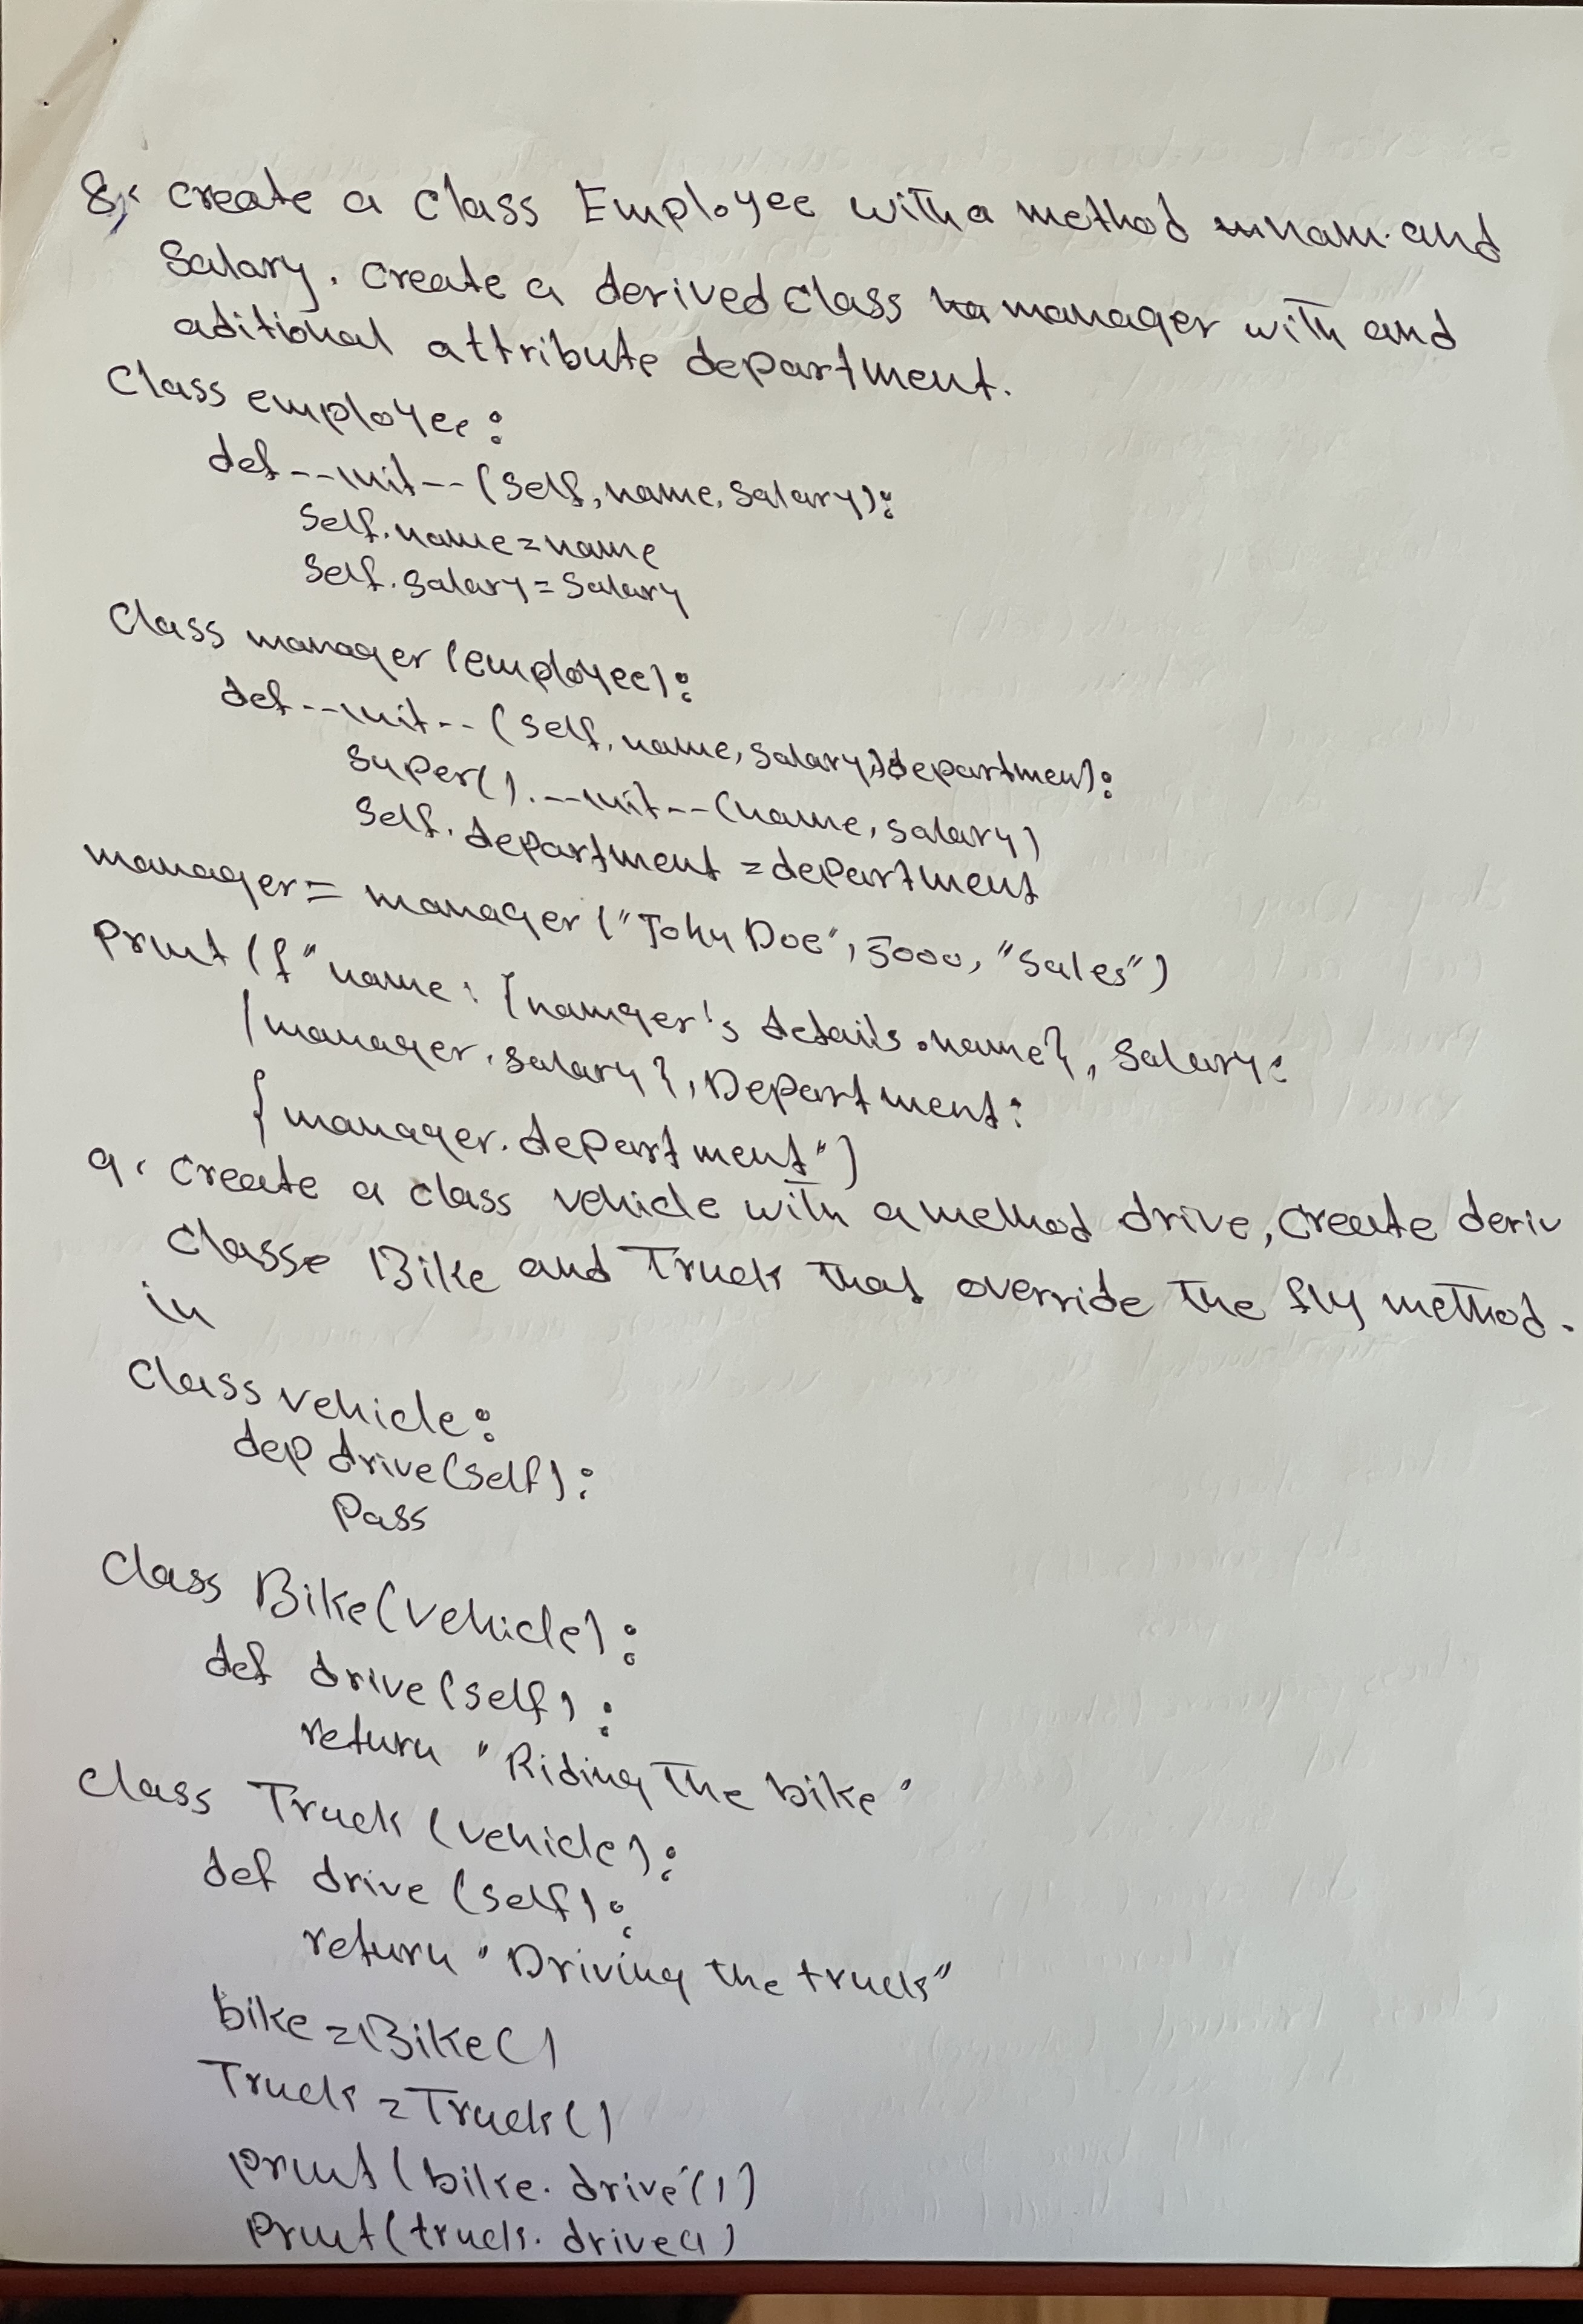 8. create a class Employee with a method nam. and
Salary. create a derived class manager with and
aditional attribute department.
Class employee:
def --init--(self, name, salary):
Self.name=name
Self.salary=Salary
Class manager(employee):
def --init--(self, name, salary, department):
super().--init--(name, salary)
Self.department=department
manager= manager("John Doe", 5000, "Sales")
Print(f"name: {namger's details.name}, Salary:
{manager.salary}, Department:
{manager.department")
9. Create a class vehicle with a method drive, create deriv
classe Bike and Truck that override the fly method.
in
Class vehicle:
dep drive(self):
Pass
Class Bike(vehicle):
def drive(self):
return "Riding The bike"
Class Truck(vehicle):
def drive(self):
return "Driving the truck"
bike=Bike()
Truck=Truck()
print(bike.drive())
Print(truck.drive()